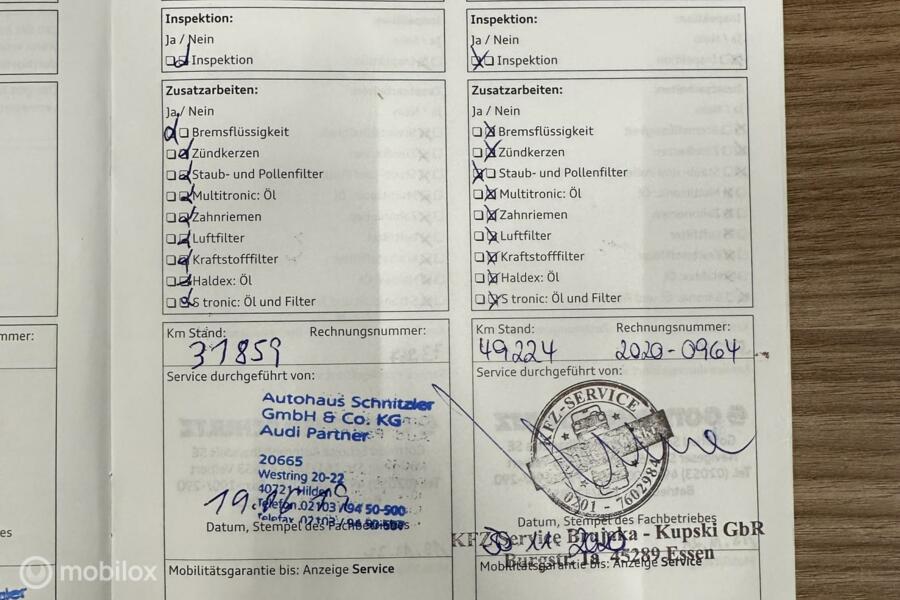 Inspektion:
Ja / Nein
Inspektion
Zusatzarbeiten:
Ja / Nein
Bremsflüssigkeit
Zündkerzen
Staub- und Pollenfilter
Multitronic: Öl
Zahnriemen
Luftfilter
Kraftstofffilter
Haldex: Öl
S tronic: Öl und Filter
Km Stand:
Rechnungsnummer:
31859
Service durchgeführt von:
Autohaus Schnitzler
GmbH & Co. KG
Audi Partner
20665
Westring 20-22
40721 Hilden
Telefon 02103 / 94 50-500
Telefax 02103 / 94 50-509
Datum, Stempel des Fachbetriebes
Mobilitätsgarantie bis: Anzeige Service
Inspektion:
Ja / Nein
Inspektion
Zusatzarbeiten:
Ja / Nein
Bremsflüssigkeit
Zündkerzen
Staub- und Pollenfilter
Multitronic: Öl
Zahnriemen
Luftfilter
Kraftstofffilter
Haldex: Öl
S tronic: Öl und Filter
Km Stand:
Rechnungsnummer:
49224
2020-0964
Service durchgeführt von:
KFZ-SERVICE
0201 - 7602984
Datum, Stempel des Fachbetriebes
KFZ Service Brajuka - Kupski GbR
Burgstr. 1a 45289 Essen
Mobilitätsgarantie bis: Anzeige Service
mmer:
es
mobilox